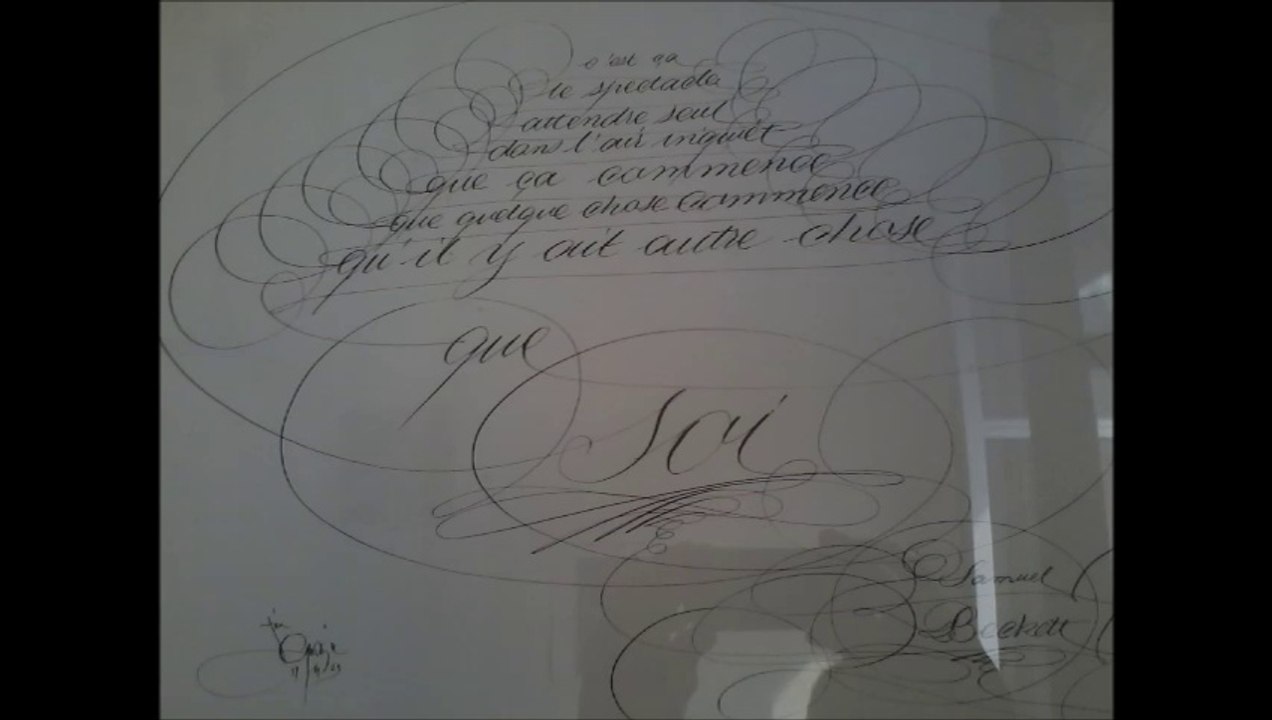 c'est ça
le spectacle
attendre seul
dans l'air inquiet
que ça commence
que quelque chose commence
qu'il y ait autre chose
que
soi
Samuel
Beckett